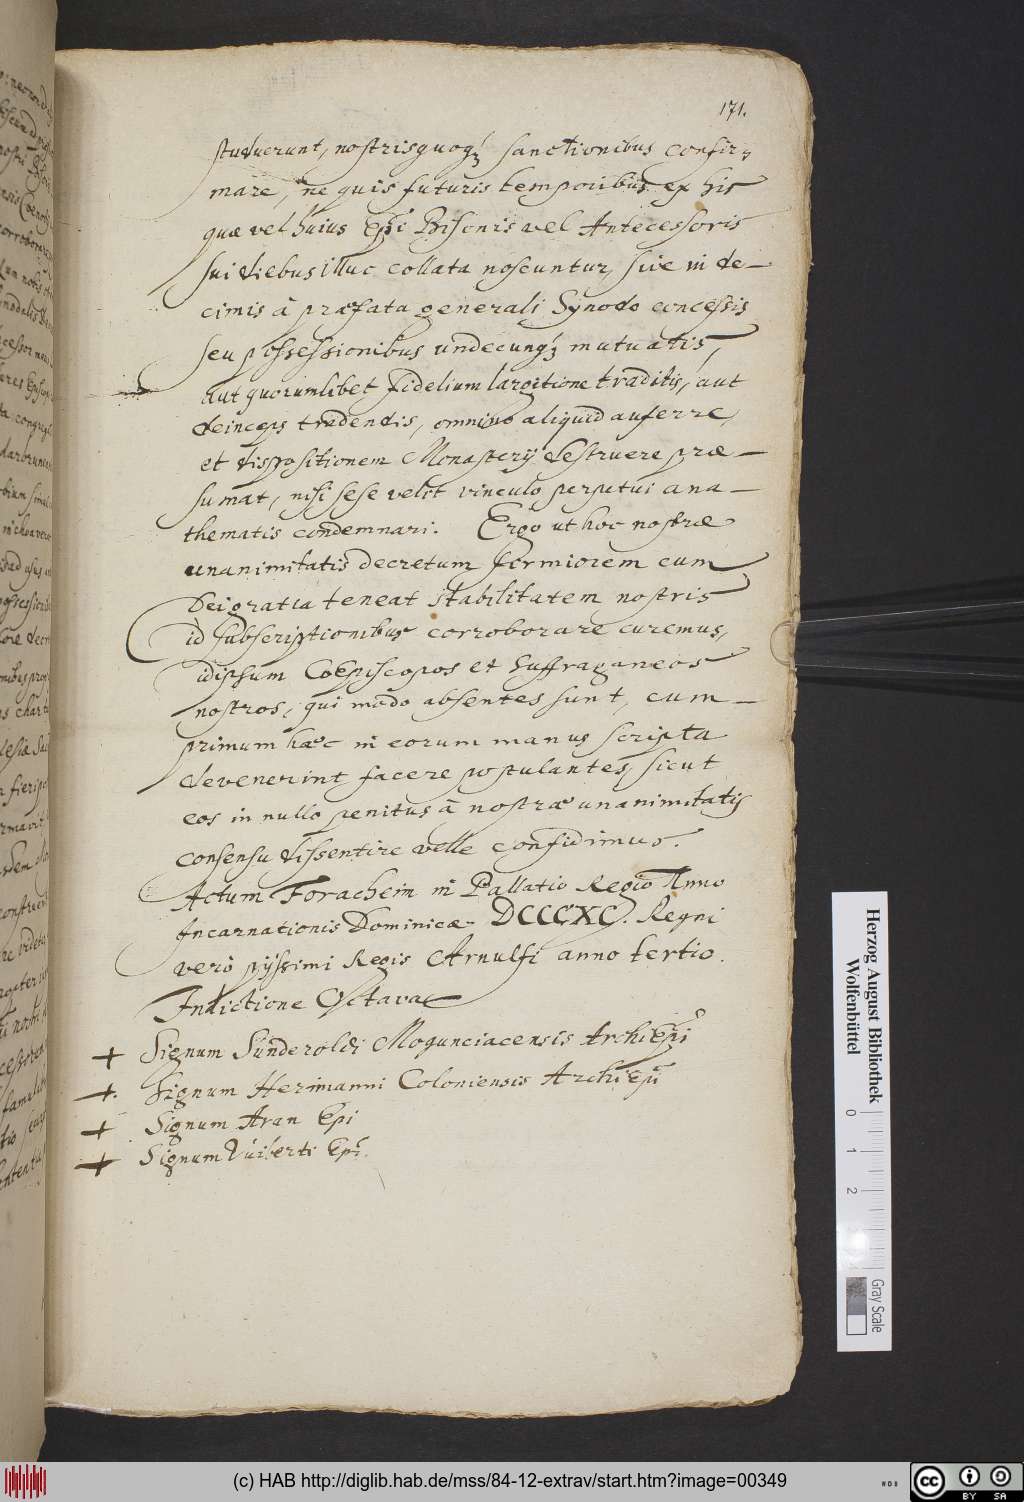 171.
studuerunt, nostrisquoqꝫ sanctionibus confir-
mare, ne quis futuris temporibus ex his
quæ vel huius Epi Bisonis vel Antecessoris
sui diebus illuc collata noscuntur, siue in de-
cimis à præfata generali Synodo concessis
seu possessionibus undecunqꝫ mutuatis,
aut quorumlibet fidelium largitione traditis, aut
deinceps tradendis, omnino aliquid auferre,
et dispositionem Monasterij destruere præ-
sumat, nisi sese velit vinculo perpetui ana-
thematis condemnari. Ergo ut hoc nostræ
unanimitatis decretum firmiorem cum
Dei gratia teneat stabilitatem nostris
id subscriptionibus corroborare curemus,
idipsum CoEpiscopos et Suffraganeos
nostros, qui modo absentes sunt, cum-
primum hæc in eorum manus scripta
devenerint facere postulantes, sicut
eos in nullo penitus à nostræ unanimitatis
consensu dissentire velle confidimus.
Actum Foracheim in Pallatio Regio Anno
Incarnationis Dominicæ DCCCXC. Regni
verò pijssimi Regis Arnulfi anno tertio.
Indictione Octava
+ Signum Sunderoldi Mogunciacensis ArchiEpi
+ Signum Herimanni Coloniensis ArchiEpi
+ Signum Aran Epi
+ Signum Vuiberti Epi.
Herzog August Bibliothek
Wolfenbüttel
0 1 2
Gray Scale
(c) HAB http://diglib.hab.de/mss/84-12-extrav/start.htm?image=00349
cc BY SA